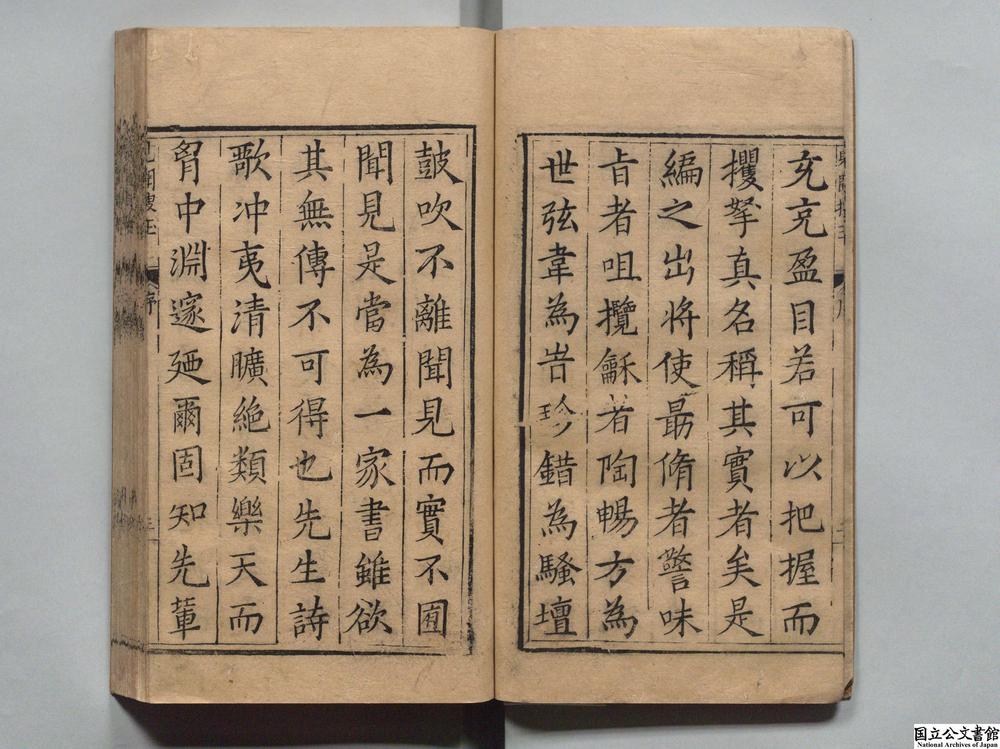 充充盈目若可以把握而
攫拏真名稱其實者矣是
編之出將使勗脩者警味
旨者咀攬龢者陶暢方為
世弦韋為吉珍錯為騷壇
鼓吹不離聞見而實不囿
聞見是當為一家書雖欲
其無傳不可得也先生詩
歌冲夷清曠絶類樂天而
胷中淵邃廼爾固知先軰
序
三
国立公文書館
National Archives of Japan